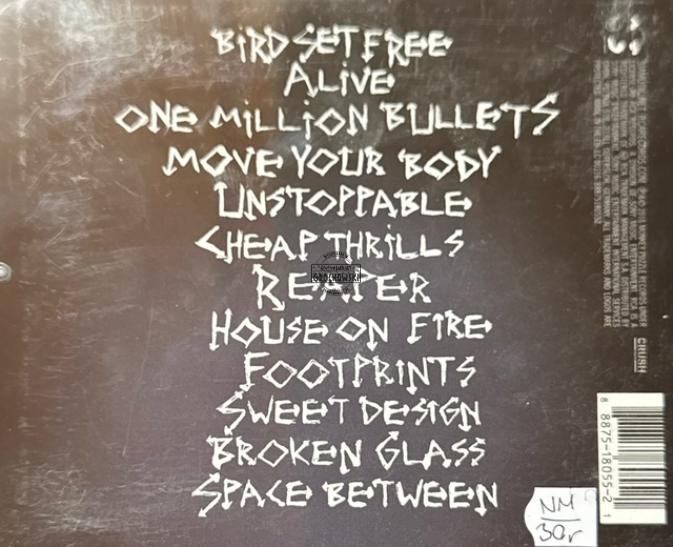 BIRD SET FREE
ALIVE
ONE MILLION BULLETS
MOVE YOUR BODY
UNSTOPPABLE
CHEAP THRILLS
REAPER
HOUSE ON FIRE
FOOTPRINTS
SWEET DESIGN
BROKEN GLASS
SPACE BETWEEN
CRUSH
8 8875-18055-2 1
NM
30r